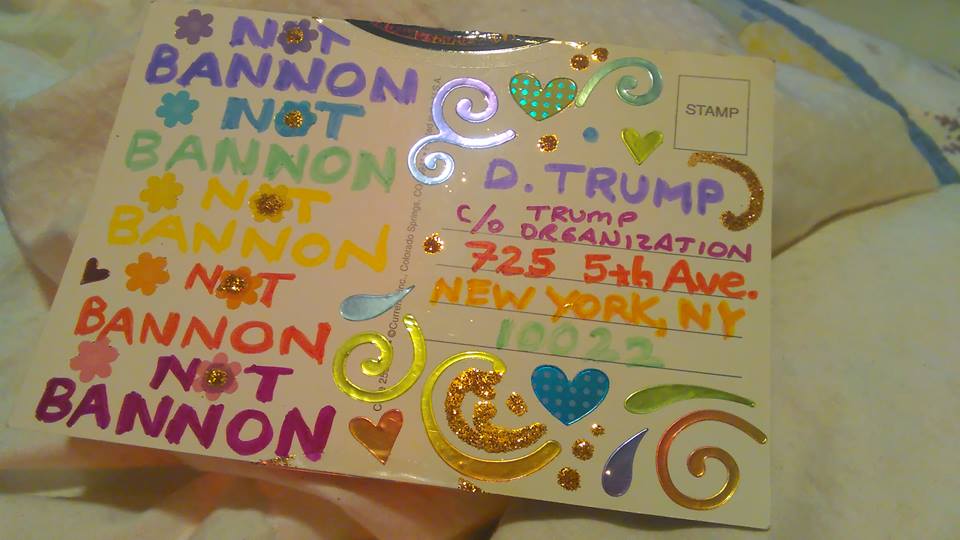 NOT
BANNON
NOT
BANNON
NOT
BANNON
NOT
BANNON
NOT
BANNON
STAMP
D. TRUMP
C/O TRUMP
ORGANIZATION
725 5th Ave.
NEW YORK, NY
10022
©Current, Inc., Colorado Springs, CO